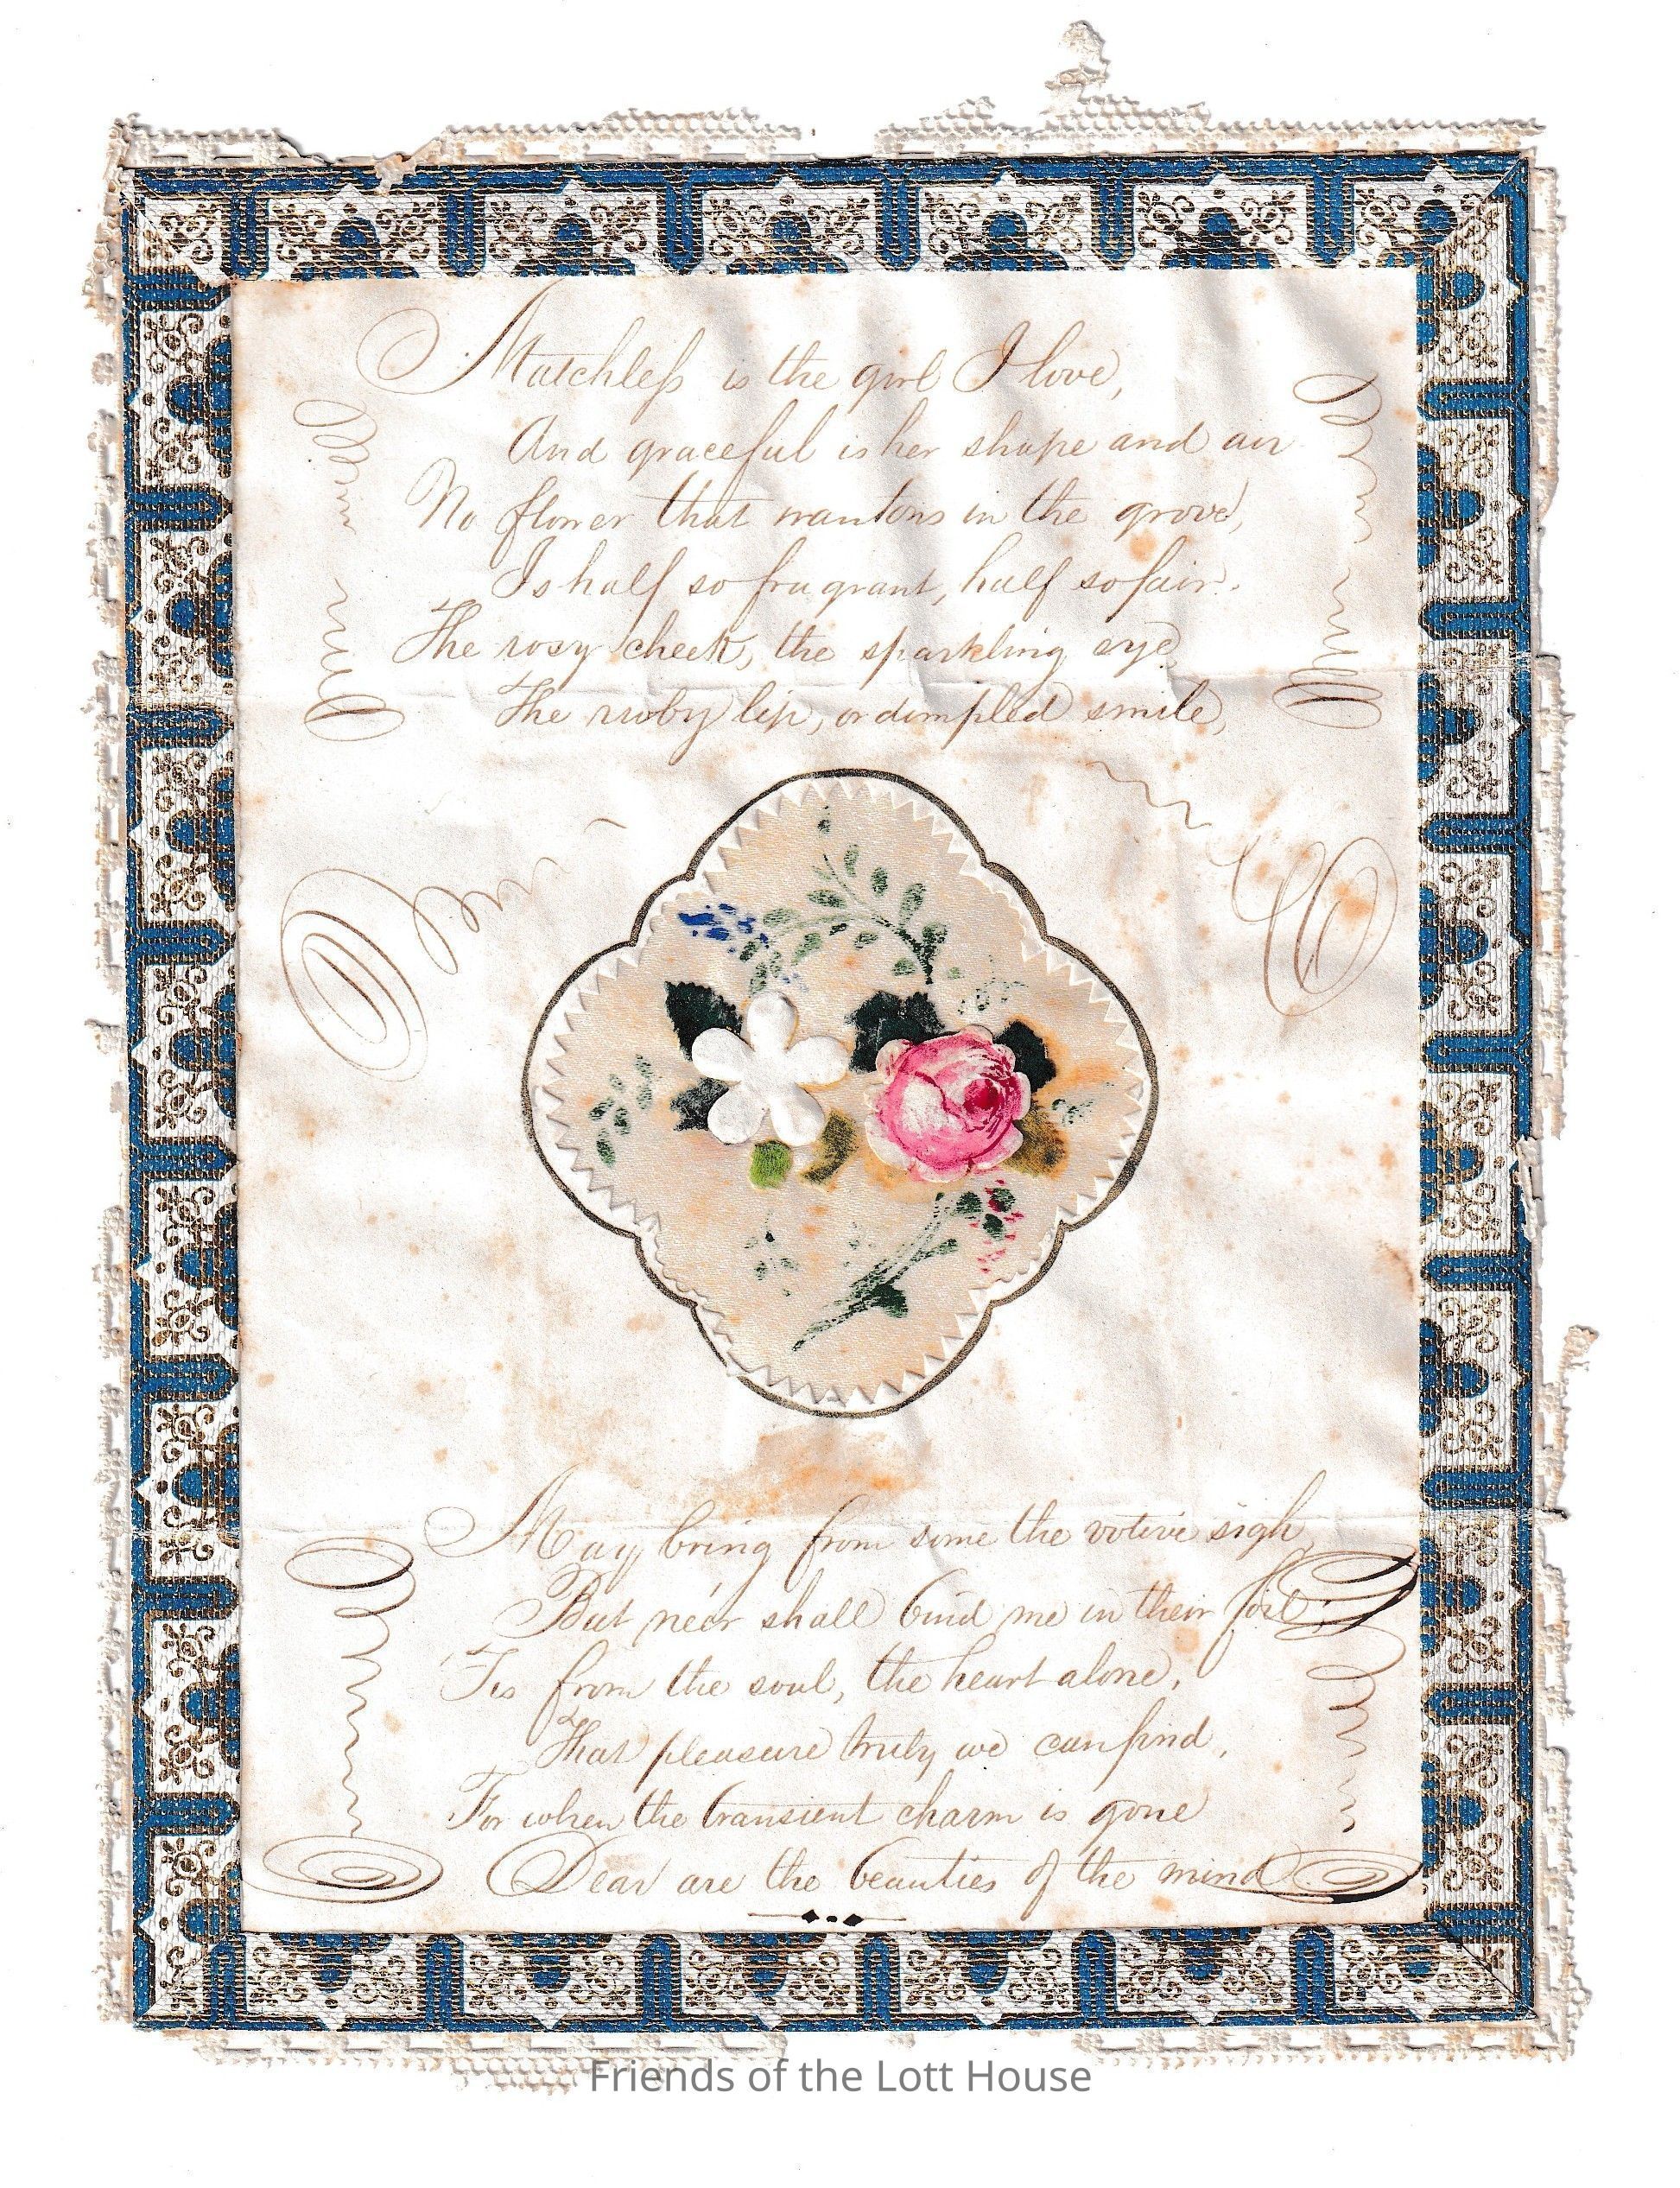 Matchless is the girl I love,
And graceful is her shape and air
No flower that wantons in the grove,
Is half so fragrant, half so fair.
The rosy cheek, the sparkling eye
The ruby lip, or dimpled smile,
May bring from some the votive sigh
But ne'er shall bind me in their foil;
'Tis from the soul, the heart alone,
That pleasure truly we can find,
For when the transient charm is gone
Dear are the beauties of the mind
Friends of the Lott House